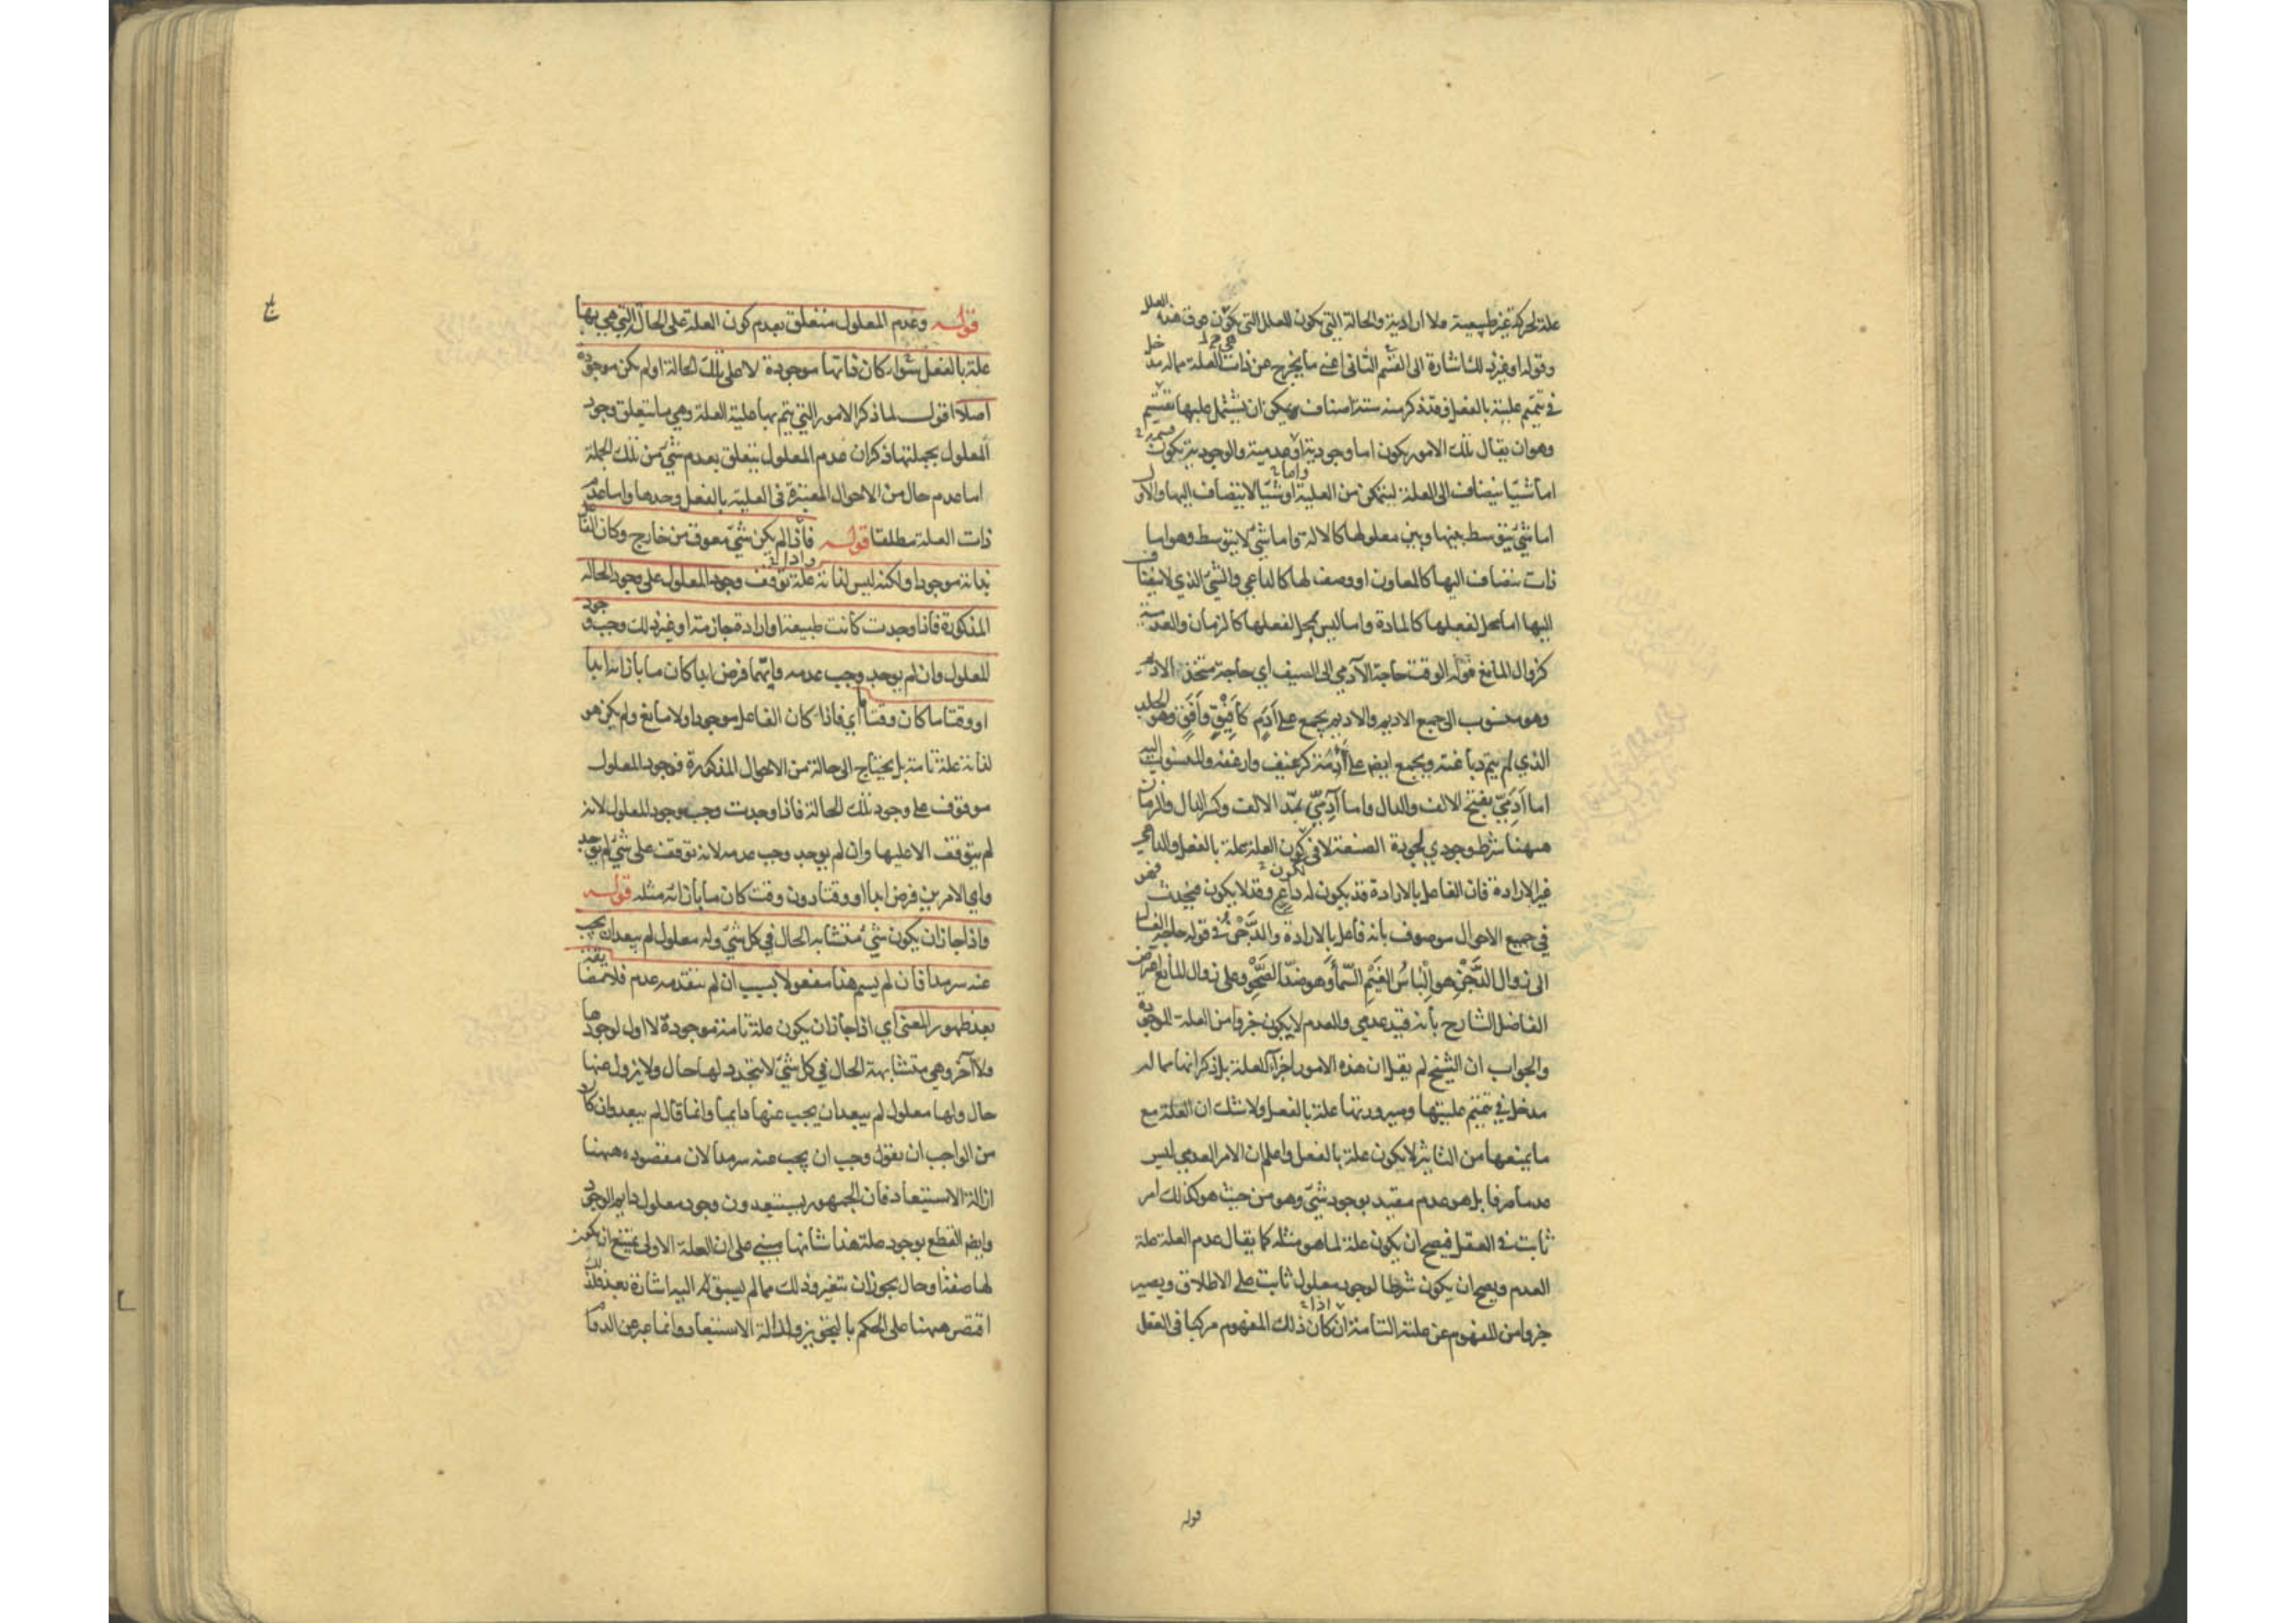 علة لحركة غير طبيعية ولا ارادية والحالة التي يكون للعلل التي يكون صوت هذه العلل
وقوله او غير ذلك اشارة الى القسم الثاني اعني ما يخرج عن ذات العلة مما له مدخل
في تتميم علية بالفعل وقد ذكر منه ستة اصناف ويمكن ان يشتمل عليها تقسيم
وهو ان يقال تلك الامور يكون اما وجودية او عدمية والوجودية يكون
اما شيئا ينضاف الى العلة ليتمكن من العلية او شيئا لا ينضاف اليها والاول
اما شيء يتوسط بينها وبين معلولها كالالة واما شيء لا يتوسط وهو اما
ذات ينضاف اليها كالمعاون او وصف لها كالداعي والشيء الذي لا ينضاف
اليها اما محل لفعلها كالمادة واما ليس بمحل لفعلها كالزمان والعدمية
كزوال المانع قوله الوقت حاجة الآدمي الى السيف اي حاجة متخذ الاديم
وهو منسوب الى جمع الاديم والاديم يجمع على اَدَم كأفيق وأَفَق وهو الجلد
الذي لم يتم دباغته ويجمع ايض على آدِمَة كرغيف وارغفة والمنسوب اليه
اما اَدَمِيّ بفتح الالف والدال واما آدِمِيّ بمدّ الالف وكسر الدال والزمان
ههنا شرط وجودي لجودة الصنعة لا في كون العلة علة بالفعل والداعي
غير الارادة فان الفاعل بالارادة قد يكون له داع وقد لا يكون فهو
في جميع الاحوال موصوف بانه فاعل بالارادة والدَّجْن في قوله حاجة الغسال
الى زوال الدَّجْن هو اِلْباسُ الغَيْمِ السّماءَ وهو ضدّ الصَّحْو وعلى زوال المانع اعتراض
الفاضل الشارح بأنه قيد عدمي والعدم لا يكون جزوا من العلة الموجودة
والجواب ان الشيخ لم يقل ان هذه الامور اجزآء للعلة بل ذكر انها مما له
مدخل في تتميم عليتها وصيرورتها علة بالفعل ولا شك ان العلة مع
ما يمنعها من التاثير لا يكون علة بالفعل واعلم ان الامر العدمي ليس
عدما صرفا بل هو عدم مقيد بوجود شيء وهو من حيث هو كذلك امر
ثابت في العقل فيصح ان يكون علة لما هو مثله كما يقال عدم العلة علة
العدم ويصح ان يكون شرطا لوجود معلول ثابت على الاطلاق ويصير
جزوا من المفهوم عن علته التامة ان كان اذا ذلك المفهوم مركبا في العقل
قوله
قوله وعدم المعلول متعلق بعدم كون العلة على الحالة التي هي بها
علة بالفعل سواء كان ذاتها موجودة لا على تلك الحالة او لم يكن موجودة
اصلا اقول لما ذكر الامور التي يتم بها علية العلة وهي ما يتعلق وجود
المعلول بجملتها ذكر ان عدم المعلول يتعلق بعدم شيء من تلك الجملة
اما عدم حال من الاحوال المعتبرة في العلية بالفعل وحدها واما عدم
ذات العلة مطلقا قوله فاذا لم يكن شيء معوق من خارج وكان الفاعل
بذاته موجودا ولكنه ليس لذاته علة توقف وجود المعلول على وجود الحالة
المذكورة فاذا وجدت كانت طبيعة او ارادة جازمة او غير ذلك وجب وجود
المعلول وان لم يوجد وجب عدمه وايهما فرض ابدا كان ما بازائه ابدا
او وقتا ما كان وقتا ما اي فاذا كان الفاعل موجودا ولا مانع ولم يكن هو
لذاته علة تامة بل يحتاج الى حالة من الاحوال المذكورة فوجود المعلول
موقوف على وجود تلك الحالة فاذا وجدت وجب وجود المعلول لانه
لم يتوقف الا عليها وان لم يوجد وجب عدمه لانه توقف على شيء لم يوجد
واي الامرين فرض ابدا او وقتا دون وقت كان ما بازائه مثله قوله
واذا جاز ان يكون شيء متشابه الحال في كل شيء وله معلول لم يبعد ان يجب
عنه سرمدا فان لم يسم هذا مفعولا بسبب ان لم يتقدمه عدم فلا مضايقة
بعد ظهور المعنى اي اذا جاز ان يكون علة تامة موجودة لا اول لوجودها
ولا آخر وهي متشابهة الحال في كل شيء لا يتجدد لها حال ولا يزول عنها
حال ولها معلول لم يبعد ان يجب عنها دايما وانما قال لم يبعد وان كان
من الواجب ان يقول وجب ان يجب عنه سرمدا لان مقصوده ههنا
ازالة الاستبعاد فان الجمهور يستبعدون وجود معلول دايم الوجود
وايض القطع بوجود علة هذا شانها مبني على ان العلة الاولى يمتنع ان يكون
لها صفة او حال يجوز ان يتغير وذلك مما لم يسبق له اليه اشارة بعد فلذلك
اقتصر ههنا على الحكم بالتجويز وازالة الاستبعاد وانما عبر عن الدوام